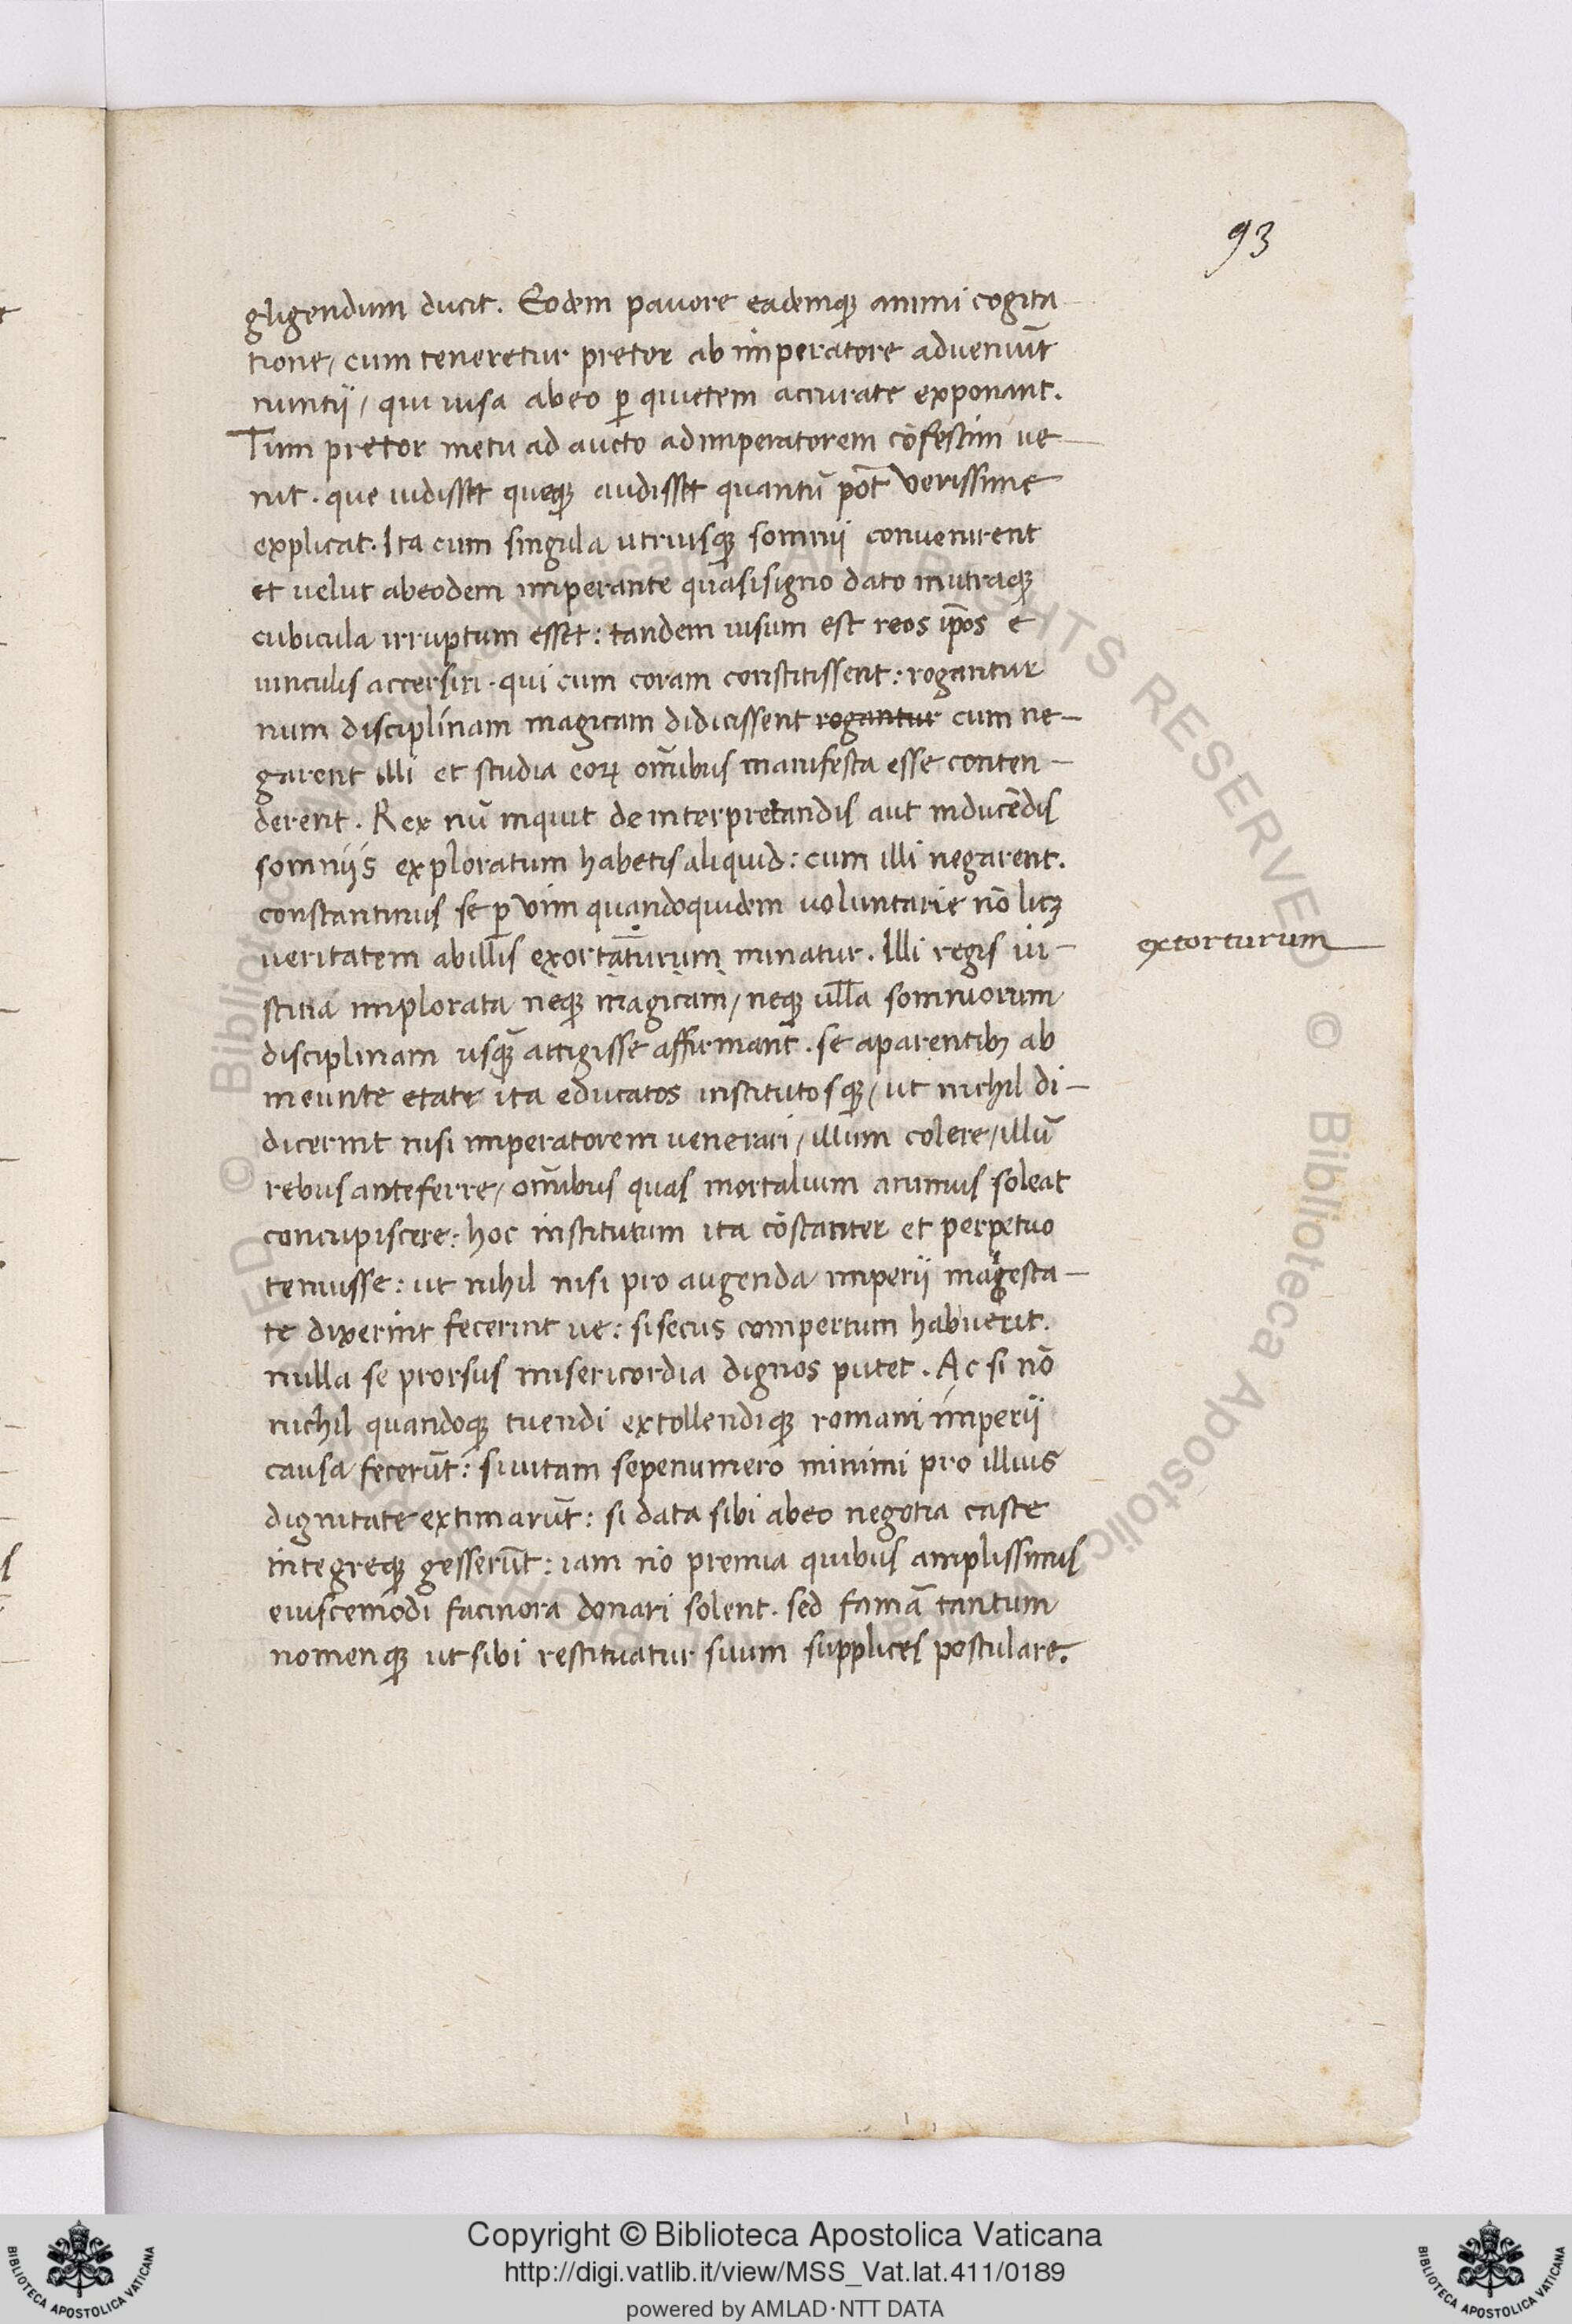 93
gligendum ducit. Eodem pavore eademqꝫ animi cogita
tione, cum teneretur pretor ab imperatore adveniūt
nuntii, qui visa abeo ꝑ quietem accurate exponant.
Tum pretor metu ad aucto ad imperatorem cōfestim ve–
nit. que vidisset queqꝫ audisset quantū pot̄ verissime
explicat. Ita cum singula utriusqꝫ somnii convenirent
et velut abeodem imperante quasi signo dato inutraqꝫ
cubicula irruptum esset: tandem visum est reos ip̄os e
vinculis accersiri. qui cum coram constitissent: rogantur
num disciplinam magicam didicissent rogantur cum ne–
garent illi et studia eoꝝ om̄ibus manifesta esse conten–
derent. Rex nū inquit de interpretandis aut inducēdis
somniis exploratum habetis aliquid: cum illi negarent.
constantinus se ꝑ vim quandoquidem voluntarie nō licꝫ
veritatem abillis exortaturum minatur. Illi regis iu–
extorturum
stitia implorata neqꝫ magicam, neqꝫ ulla somniorum
disciplinam usqꝫ attigisse affirmant. se aparentibꝫ ab
ineunte etate ita educatos institutosqꝫ, ut nichil di–
dicerint nisi imperatorem venerari, illum colere, illū
rebus anteferre, om̄ibus quas mortalium animus soleat
concupiscere: hoc institutum ita cōstanter et perpetuo
tenuisse: ut nihil nisi pro augenda imperii magesta–
te dixerint fecerint ve: si secus compertum habuerit.
nulla se prorsus misericordia dignos putet. Ac si nō
nichil quandoqꝫ tuendi extollendiqꝫ romani imperii
causa fecerūt: si vitam sepenumero minimi pro illius
dignitate extimarūt: si data sibi abeo negotia caste
integreqꝫ gesserūt: iam nō premia quibus amplissimis
eiuscemodi facinora donari solent. sed famā tantum
nomenqꝫ ut sibi restituatur suum supplices postulare.
© Biblioteca Apostolica Vaticana ALL RIGHTS RESERVED
Copyright © Biblioteca Apostolica Vaticana
http://digi.vatlib.it/view/MSS_Vat.lat.411/0189
powered by AMLAD·NTT DATA
BIBLIOTECA APOSTOLICA VATICANA
BIBLIOTECA APOSTOLICA VATICANA